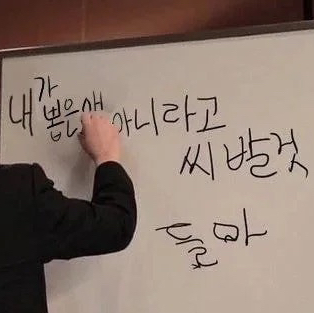 내가 뽑은 애 아니라고
씨발것
들마